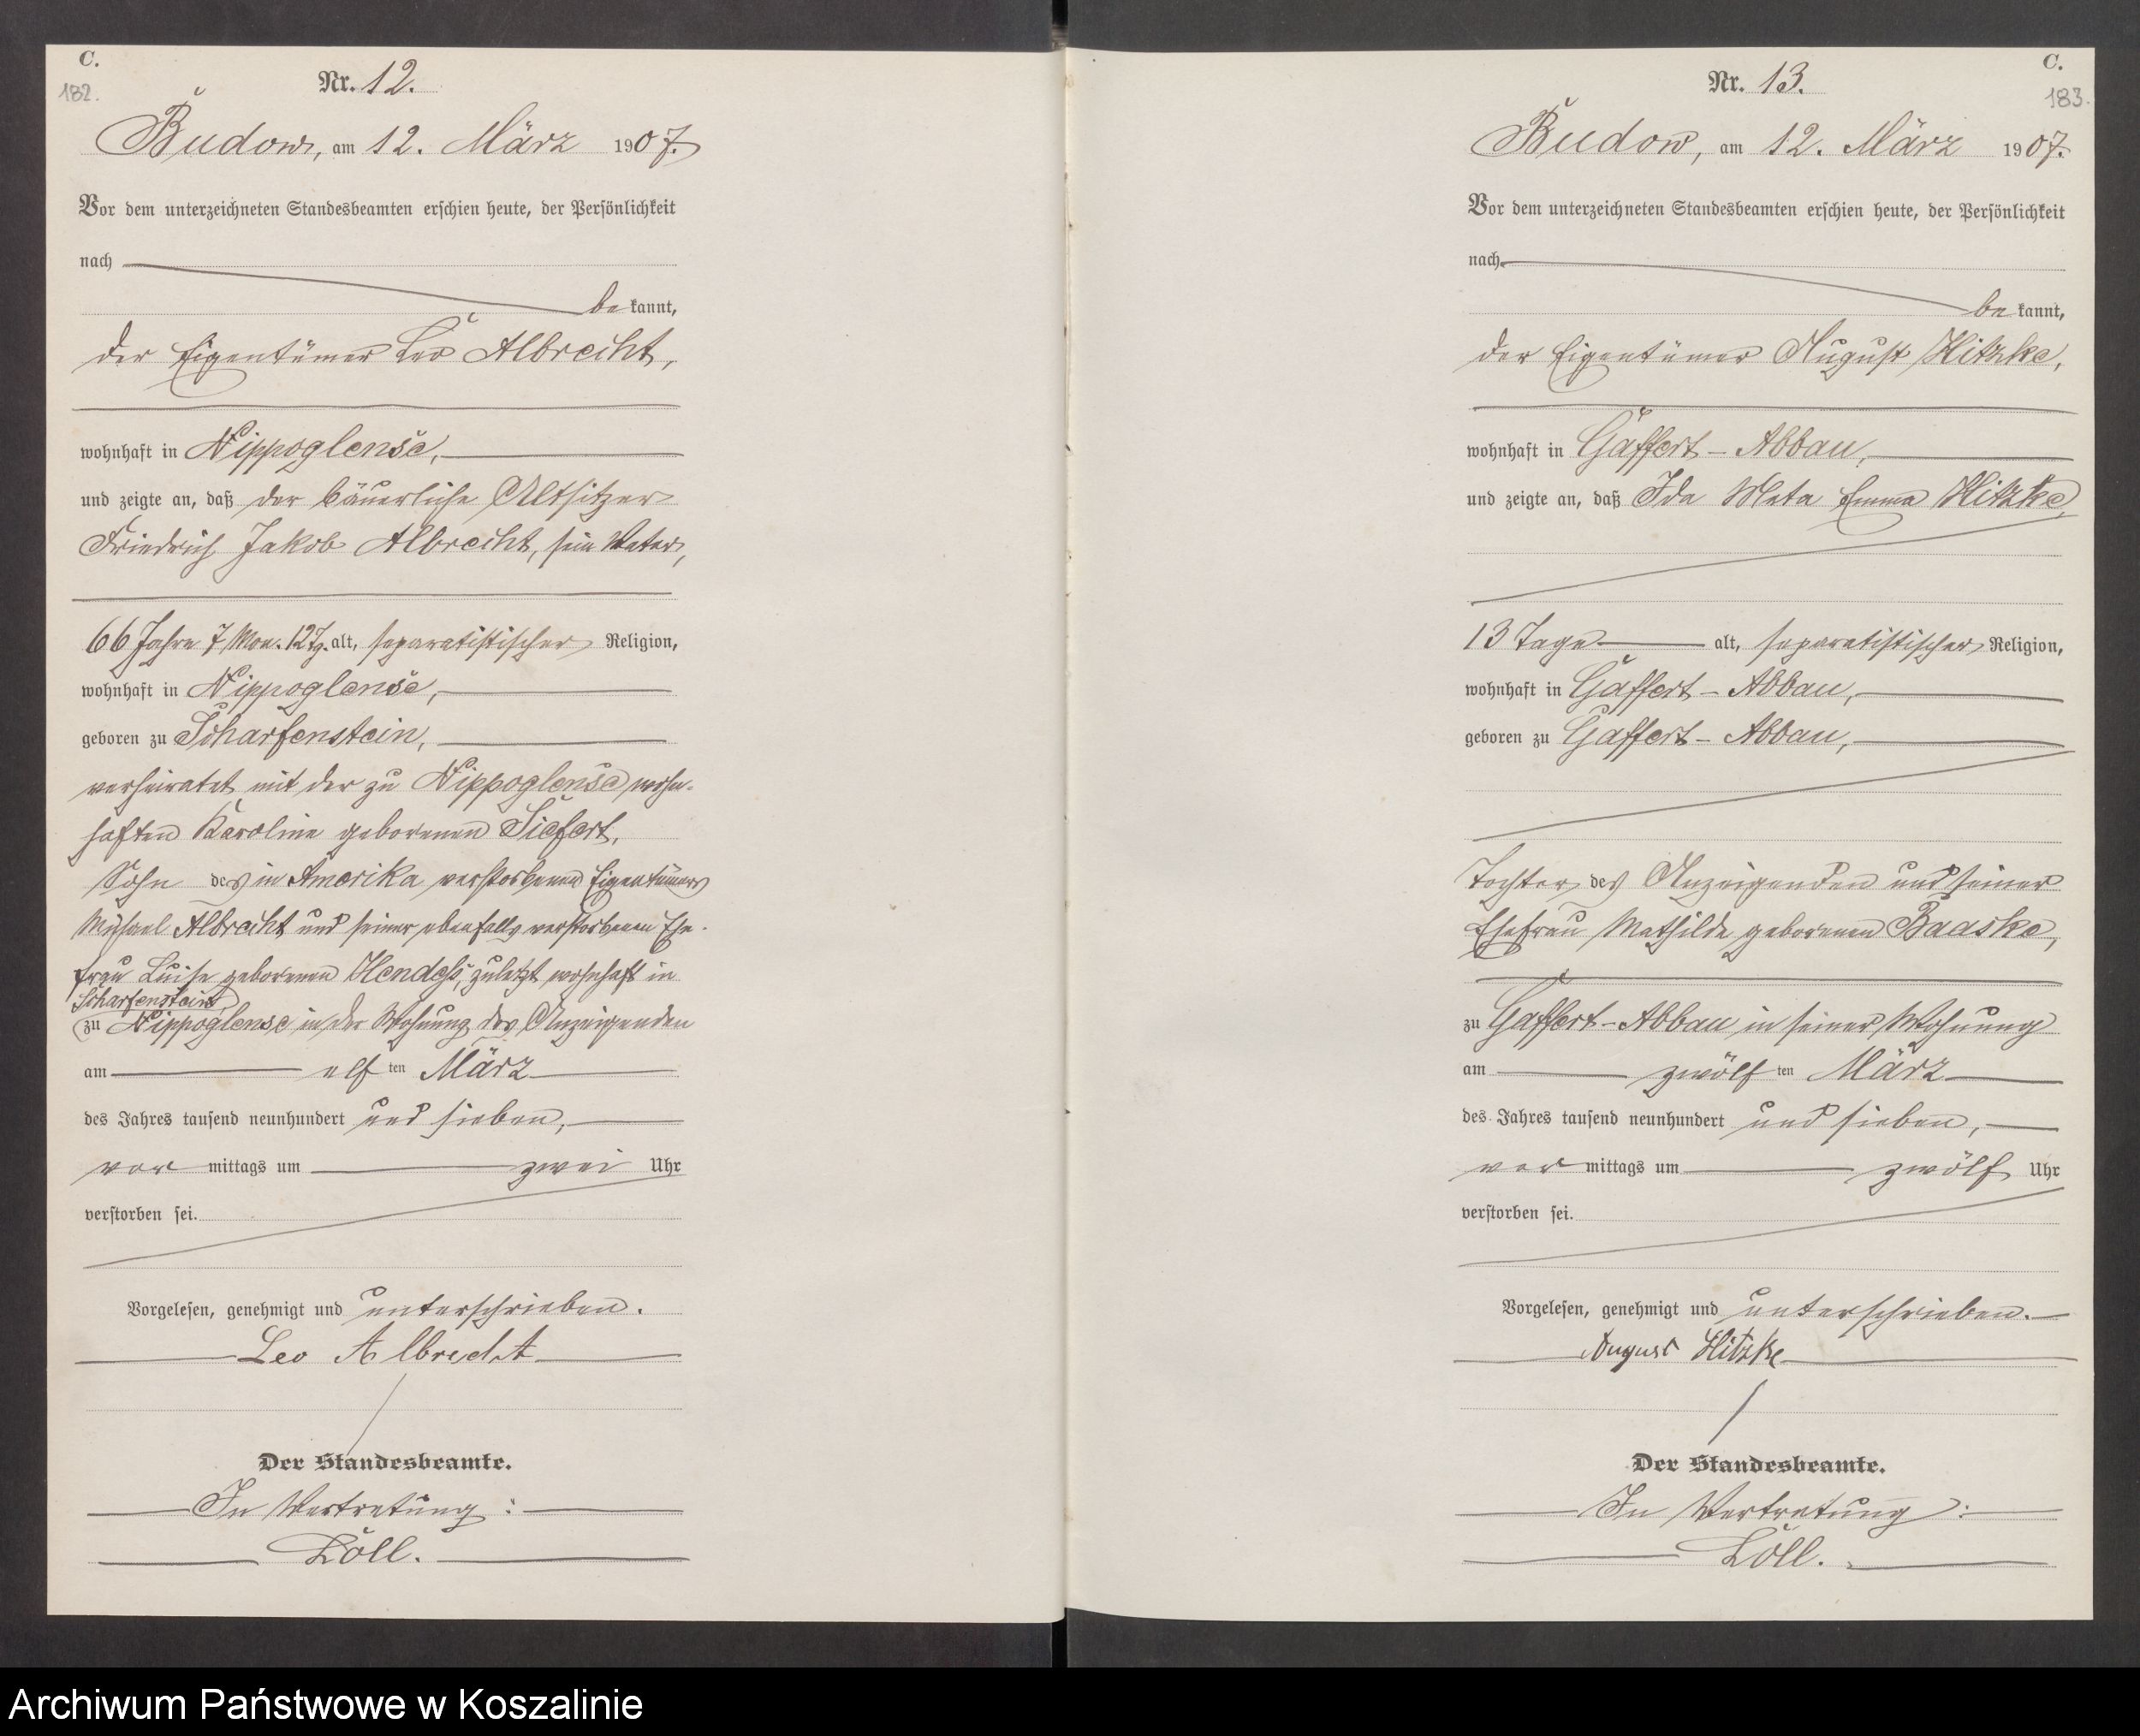 C.
182.
Nr. 12.
Budow, am 12. März 1907.
Vor dem unterzeichneten Standesbeamten erschien heute, der Persönlichkeit
nach
be kannt,
der Eigentümer Leo Albrecht,
wohnhaft in Nippoglense,
und zeigte an, daß der bäuerliche Altsitzer
Friedrich Jakob Albrecht, sein Vater,
66 Jahre 7 Mon. 12 Tg. alt, separatistischer Religion,
wohnhaft in Nippoglense,
geboren zu Scharfenstein,
verheiratet mit der zu Nippoglense wohn-
haften Karoline geborenen Siefert,
Sohn des in Amerika verstorbenen Eigentümers
Michael Albrecht und seiner ebenfalls verstorbenen Ehe-
frau Luise geborenen Hendeß, zuletzt wohnhaft in
Scharfenstein,
zu Nippoglense in der Wohnung des Anzeigenden
am elf ten März
des Jahres tausend neunhundert und sieben,
vor mittags um zwei Uhr
verstorben sei.
Vorgelesen, genehmigt und unterschrieben.
Leo Albrecht
Der Standesbeamte.
In Vertretung:
Löll.
C.
183.
Nr. 13.
Budow, am 12. März 1907.
Vor dem unterzeichneten Standesbeamten erschien heute, der Persönlichkeit
nach
be kannt,
der Eigentümer August Hitzke,
wohnhaft in Gaffert-Abbau,
und zeigte an, daß Ida Meta Emma Hitzke,
13 Tage alt, separatistischer Religion,
wohnhaft in Gaffert-Abbau,
geboren zu Gaffert-Abbau,
Tochter des Anzeigenden und seiner
Ehefrau Mathilde geborenen Baaske,
zu Gaffert-Abbau in seiner Wohnung
am zwölf ten März
des Jahres tausend neunhundert und sieben,
vor mittags um zwölf Uhr
verstorben sei.
Vorgelesen, genehmigt und unterschrieben.
August Hitzke
Der Standesbeamte.
In Vertretung:
Löll.
Archiwum Państwowe w Koszalinie